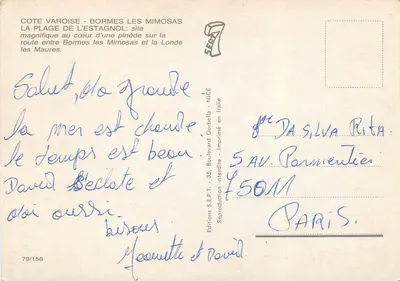 COTE VAROISE - BORMES LES MIMOSAS
LA PLAGE DE L'ESTAGNOL: site
magnifique au cœur d'une pinède sur la
route entre Bormes les Mimosas et la Londe
les Maures.
SEPT
Salut, ma grande
la mer est chaude.
le temps est beau.
David s'éclate et
moi aussi.
bisous
Jeannette et David
79/156
Editions S.E.P.T. - 35, Boulevard Gorbella - NICE
Reproduction interdite - Imprimé en Italie
DA SILVA Rita.
5 AV. Parmentier
75011
PARIS.